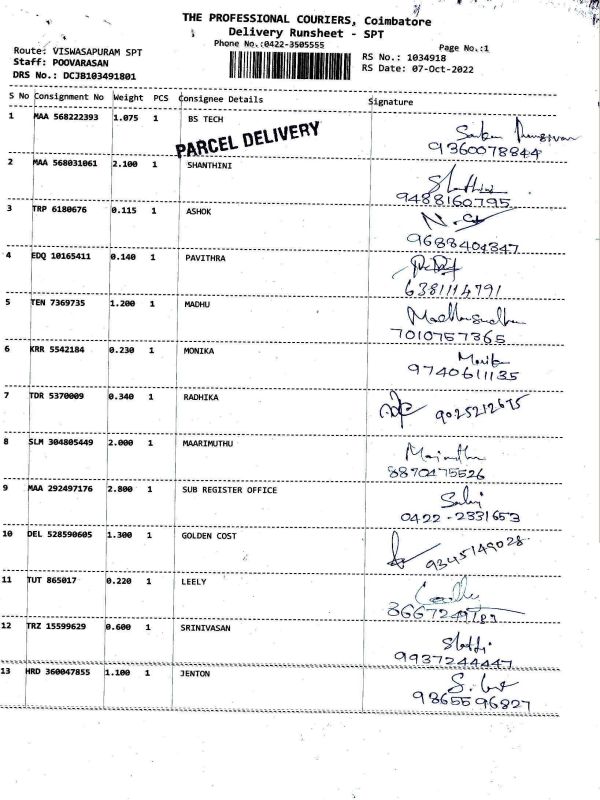 THE PROFESSIONAL COURIERS, Coimbatore
Delivery Runsheet - SPT
Phone No.:0422-3505555
Page No.:1
Route: VISWASAPURAM SPT
RS No.: 1034918
Staff: POOVARASAN
RS Date: 07-Oct-2022
DRS No.: DCJB103491801
S No Consignment No Weight PCS Consignee Details Signature
1 MAA 568222393 1.075 1 BS TECH
9360078844
PARCEL DELIVERY
2 MAA 568031061 2.100 1 SHANTHINI
9488160795
3 TRP 6180676 0.115 1 ASHOK
9688404347
4 EDQ 10165411 0.140 1 PAVITHRA
6381114791
5 TEN 7369735 1.200 1 MADHU
7010757365
6 KRR 5542184 0.230 1 MONIKA
9740611135
7 TDR 5370009 0.340 1 RADHIKA
9025212675
8 SLM 304805449 2.000 1 MAARIMUTHU
8870475526
9 MAA 292497176 2.800 1 SUB REGISTER OFFICE
0422-2331653
10 DEL 528590605 1.300 1 GOLDEN COST
9345149028
11 TUT 865017 0.220 1 LEELY
12 TRZ 15599629 0.600 1 SRINIVASAN
9937244447
13 HRD 360047855 1.100 1 JENTON
9865596827